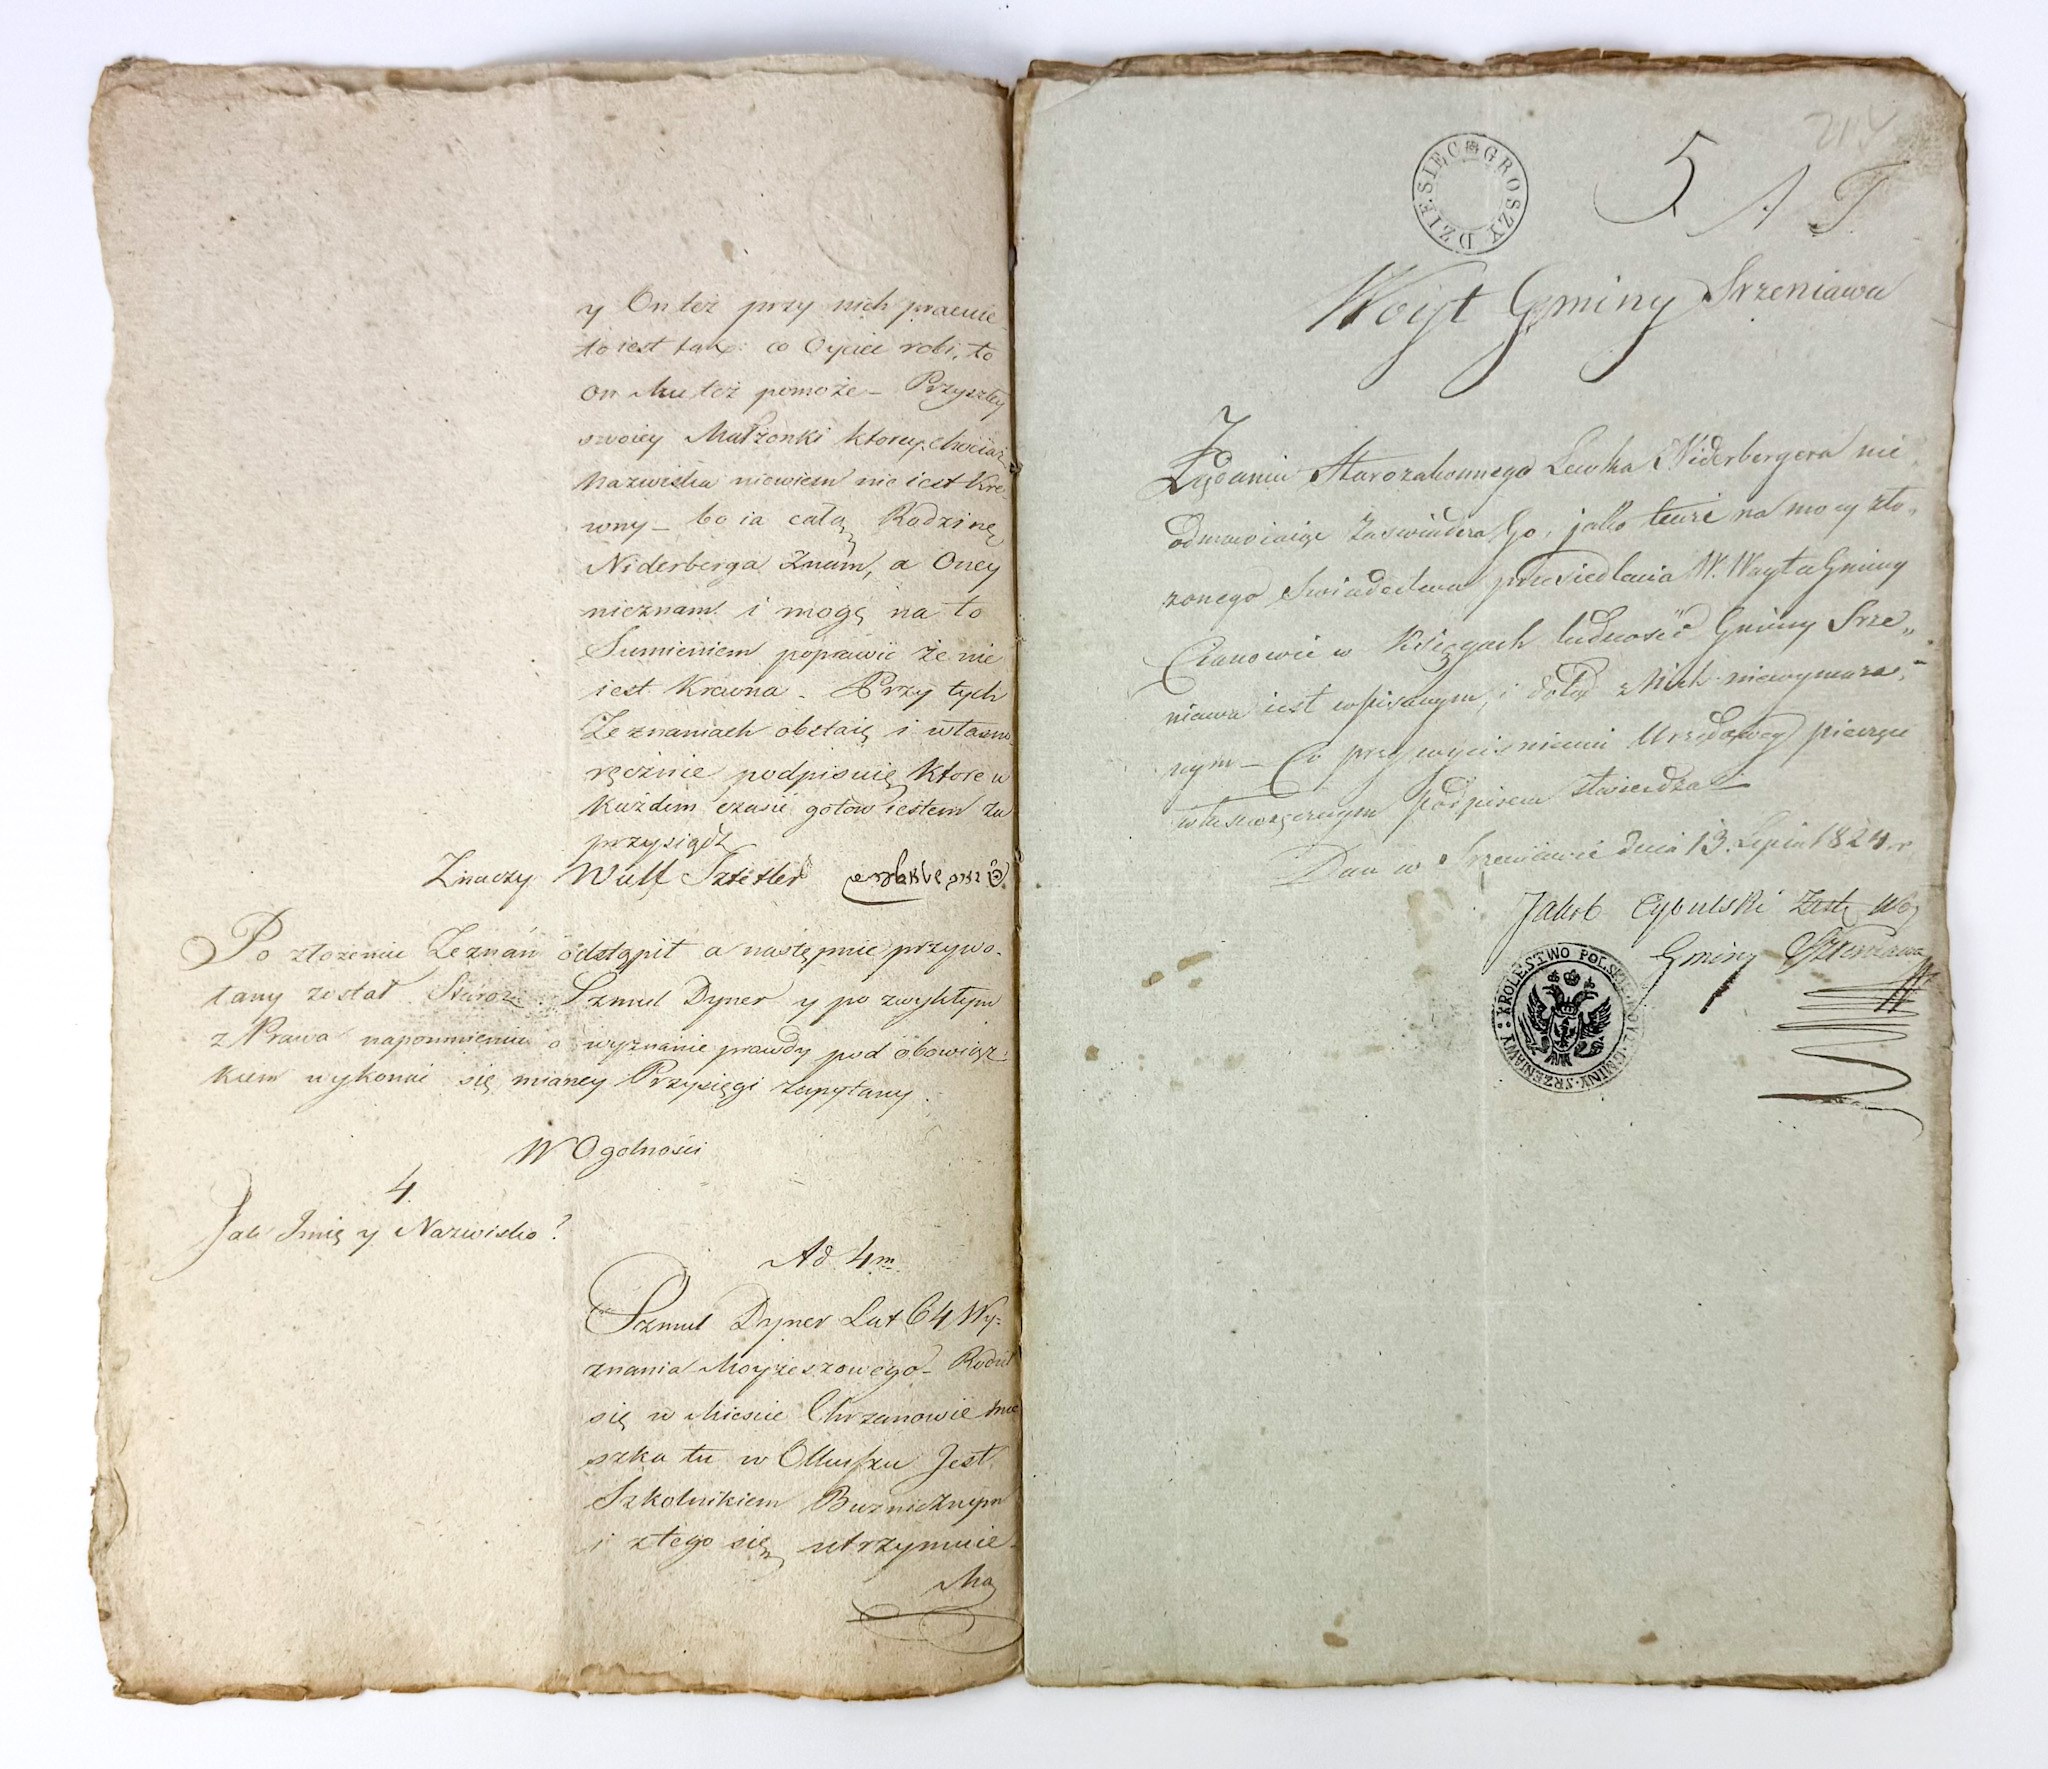 y On też przy nich pracuie
to iest tak: co Oyciec robi, to
on Mu też pomoże – Przyszłey
swoiey Małżonki ktorey chociaż
Nazwiska niewiem nie iest Kre
wny – bo ia całą Rodzinę
Niderberga Znam, a Oney
nieznam i mogę na to
Sumieniem poprawić że nie
iest Krewna – Przy tych
Zeznaniach obstaię i własno
ręcznie podpisuię, ktore w
każdem czasie gotow iestem za
przysiądz
Znaczy Wulf Sztetler
Po złożeniu Zeznań odstąpił a następnie przywo-
łany został Staroz. Szmul Dyner y po zwykłym
z Prawa napomnieniu o wyznanie prawdy pod obowiąz-
kiem wykonać się mianey Przysięgi zapytany.
W Ogolności
4.
Jak Imię y Nazwisko?
Ad. 4m.
Szmul Dyner Lat 64 Wy-
znania Moyżeszowego – Rodził
się w Mieście Chrzanowie mie
szka tu w Olkuszu Jest
Szkolnikiem Bużnicznym
i z tego się utrzymuie –
Ma
DZIESIĘC GROSZY
5 A T
214
Woyt Gminy Srzeniawa
Żądaniu Starozakonnego Lewka Niderbergera nie
odmawiaiąc Zaswiadcza Go, jako tenże na mocy zło„
żonego Swiadectwa przesiedlenia W. Woyta Gminy
Cianowic w Księgach ludności Gminy Srze„
niawa iest wpisanym, i dotąd z Nich niewymaza„
nym – Co przy wycisnieniu Urzędowey pieczęci
własnoręcznym podpisem stwierdza –
Dan w Srzeniawie dnia 13. Lipca 1824 r
Jakob Cybulski Zastę Wóy
Gminy Srzeniawa
KROLESTWO POLSKIE GMINY SRZENIAWY